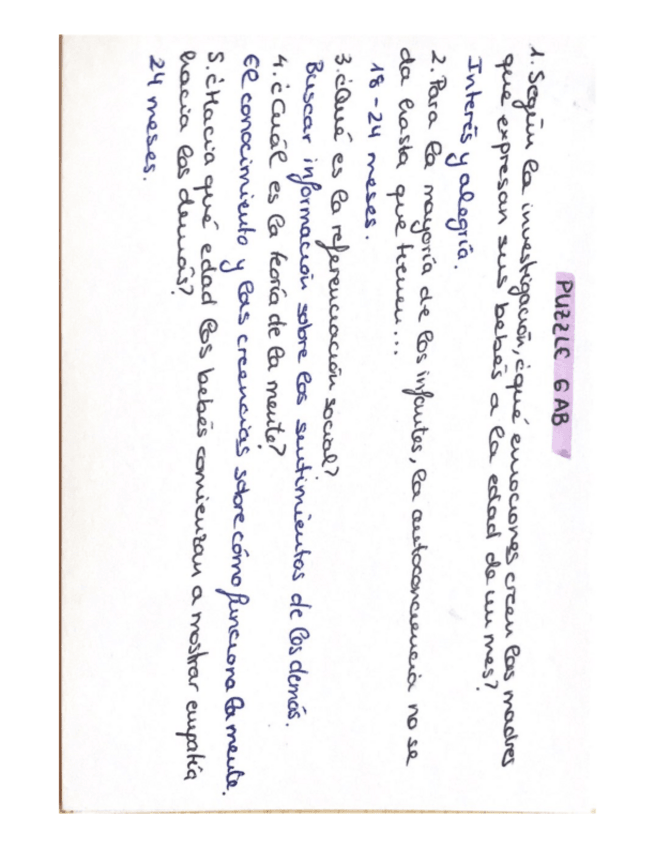 PUZZLE 6 AB
1. Según la investigación, ¿qué emociones creen las madres
que expresan sus bebés a la edad de un mes?
Interés y alegría.
2. Para la mayoría de los infantes, la autoconciencia no se
da hasta que tienen...
18-24 meses.
3. ¿Qué es la referenciación social?
Buscar información sobre los sentimientos de los demás.
4. ¿Cuál es la teoría de la mente?
El conocimiento y las creencias sobre cómo funciona la mente.
5. ¿Hacia qué edad los bebés comienzan a mostrar empatía
hacia los demás?
24 meses.